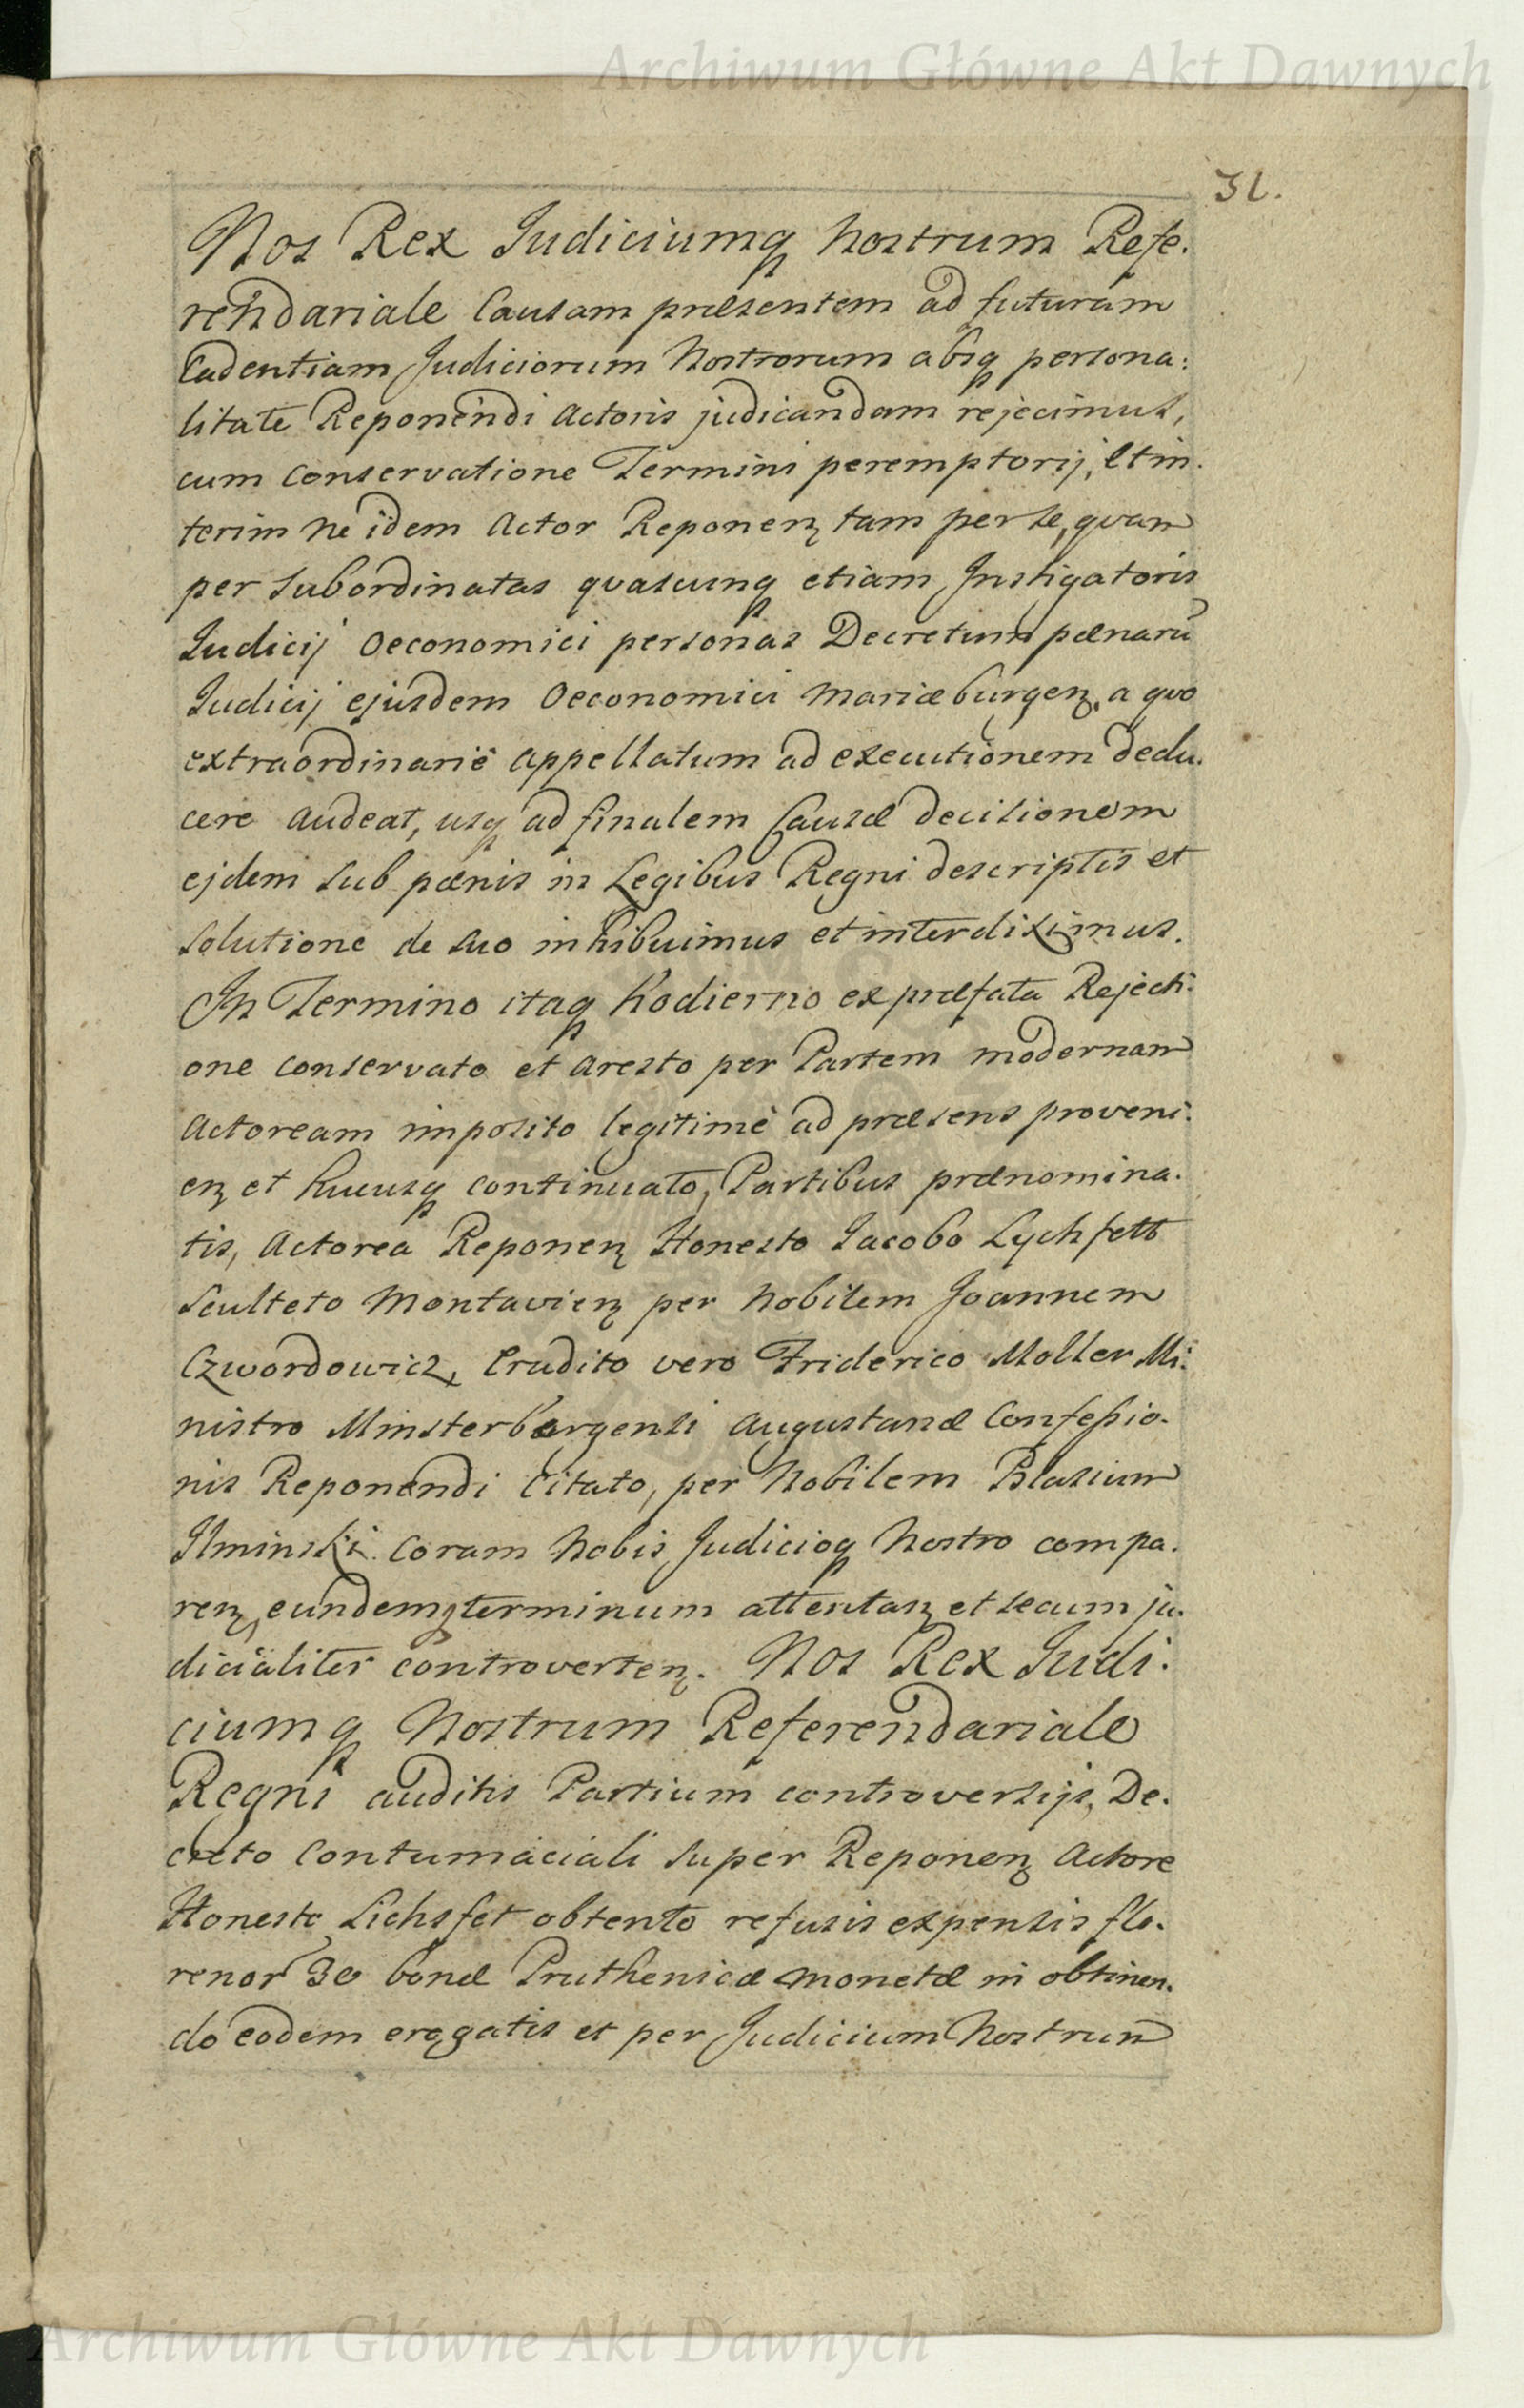 Archiwum Główne Akt Dawnych
31.
Nos Rex Judiciumq Nostrum Refe.
rendariale Causam præsentem ad futuram
Cadentiam Judiciorum Nostrorum absq persona:
litate Reponendi Actoris judicandam rejecimus,
cum conservatione Termini peremptorij, Et in.
terim ne idem Actor Reponenȝ tam per se, qvam
per subordinatas qvascunq etiam Instigatoris
Judicij Oeconomici personas Decretum pænarū
Judicij ejusdem Oeconomici Mariæburgenȝ. a qvo
extraordinariè appellatum ad executionem dedu.
cere audeat, usq ad finalem Causæ decisionem
ejdem sub pænis in Legibus Regni descriptis et
solutione de suo inhibuimus et interdiximus.
In Termino itaq hodierno ex præfata Rejecti.
one conservato et aresto per Partem modernam
Actoream imposito legitimè ad præsens proveni.
enȝ et hucusq continuato, Partibus prænomina.
tis, Actorea Reponenȝ Honesto Jacobo Lychfett
Sculteto Montavienȝ per Nobilem Joannem
Czwordowicz, Erudito vero Friderico Moller Mi.
nistro Minsterbergensi Augustanæ Confessio.
nis Reponendi Citato, per Nobilem Blasium
Ilminski coram Nobis Judicioq Nostro compa.
renȝ, eundemq terminum attentanȝ et secum ju.
dicialiter controvertenȝ. Nos Rex Judi.
ciumq Nostrum Referendariale
Regni auditis Partium controversijs, De.
creto Contumaciali super Reponenȝ Actore
Honesto Lichsfet obtento refusis expensis flo.
renor 30 bonæ Pruthenicæ monetæ in obtinen.
do eodem erogatis et per Judicium Nostrum
Archiwum Główne Akt Dawnych